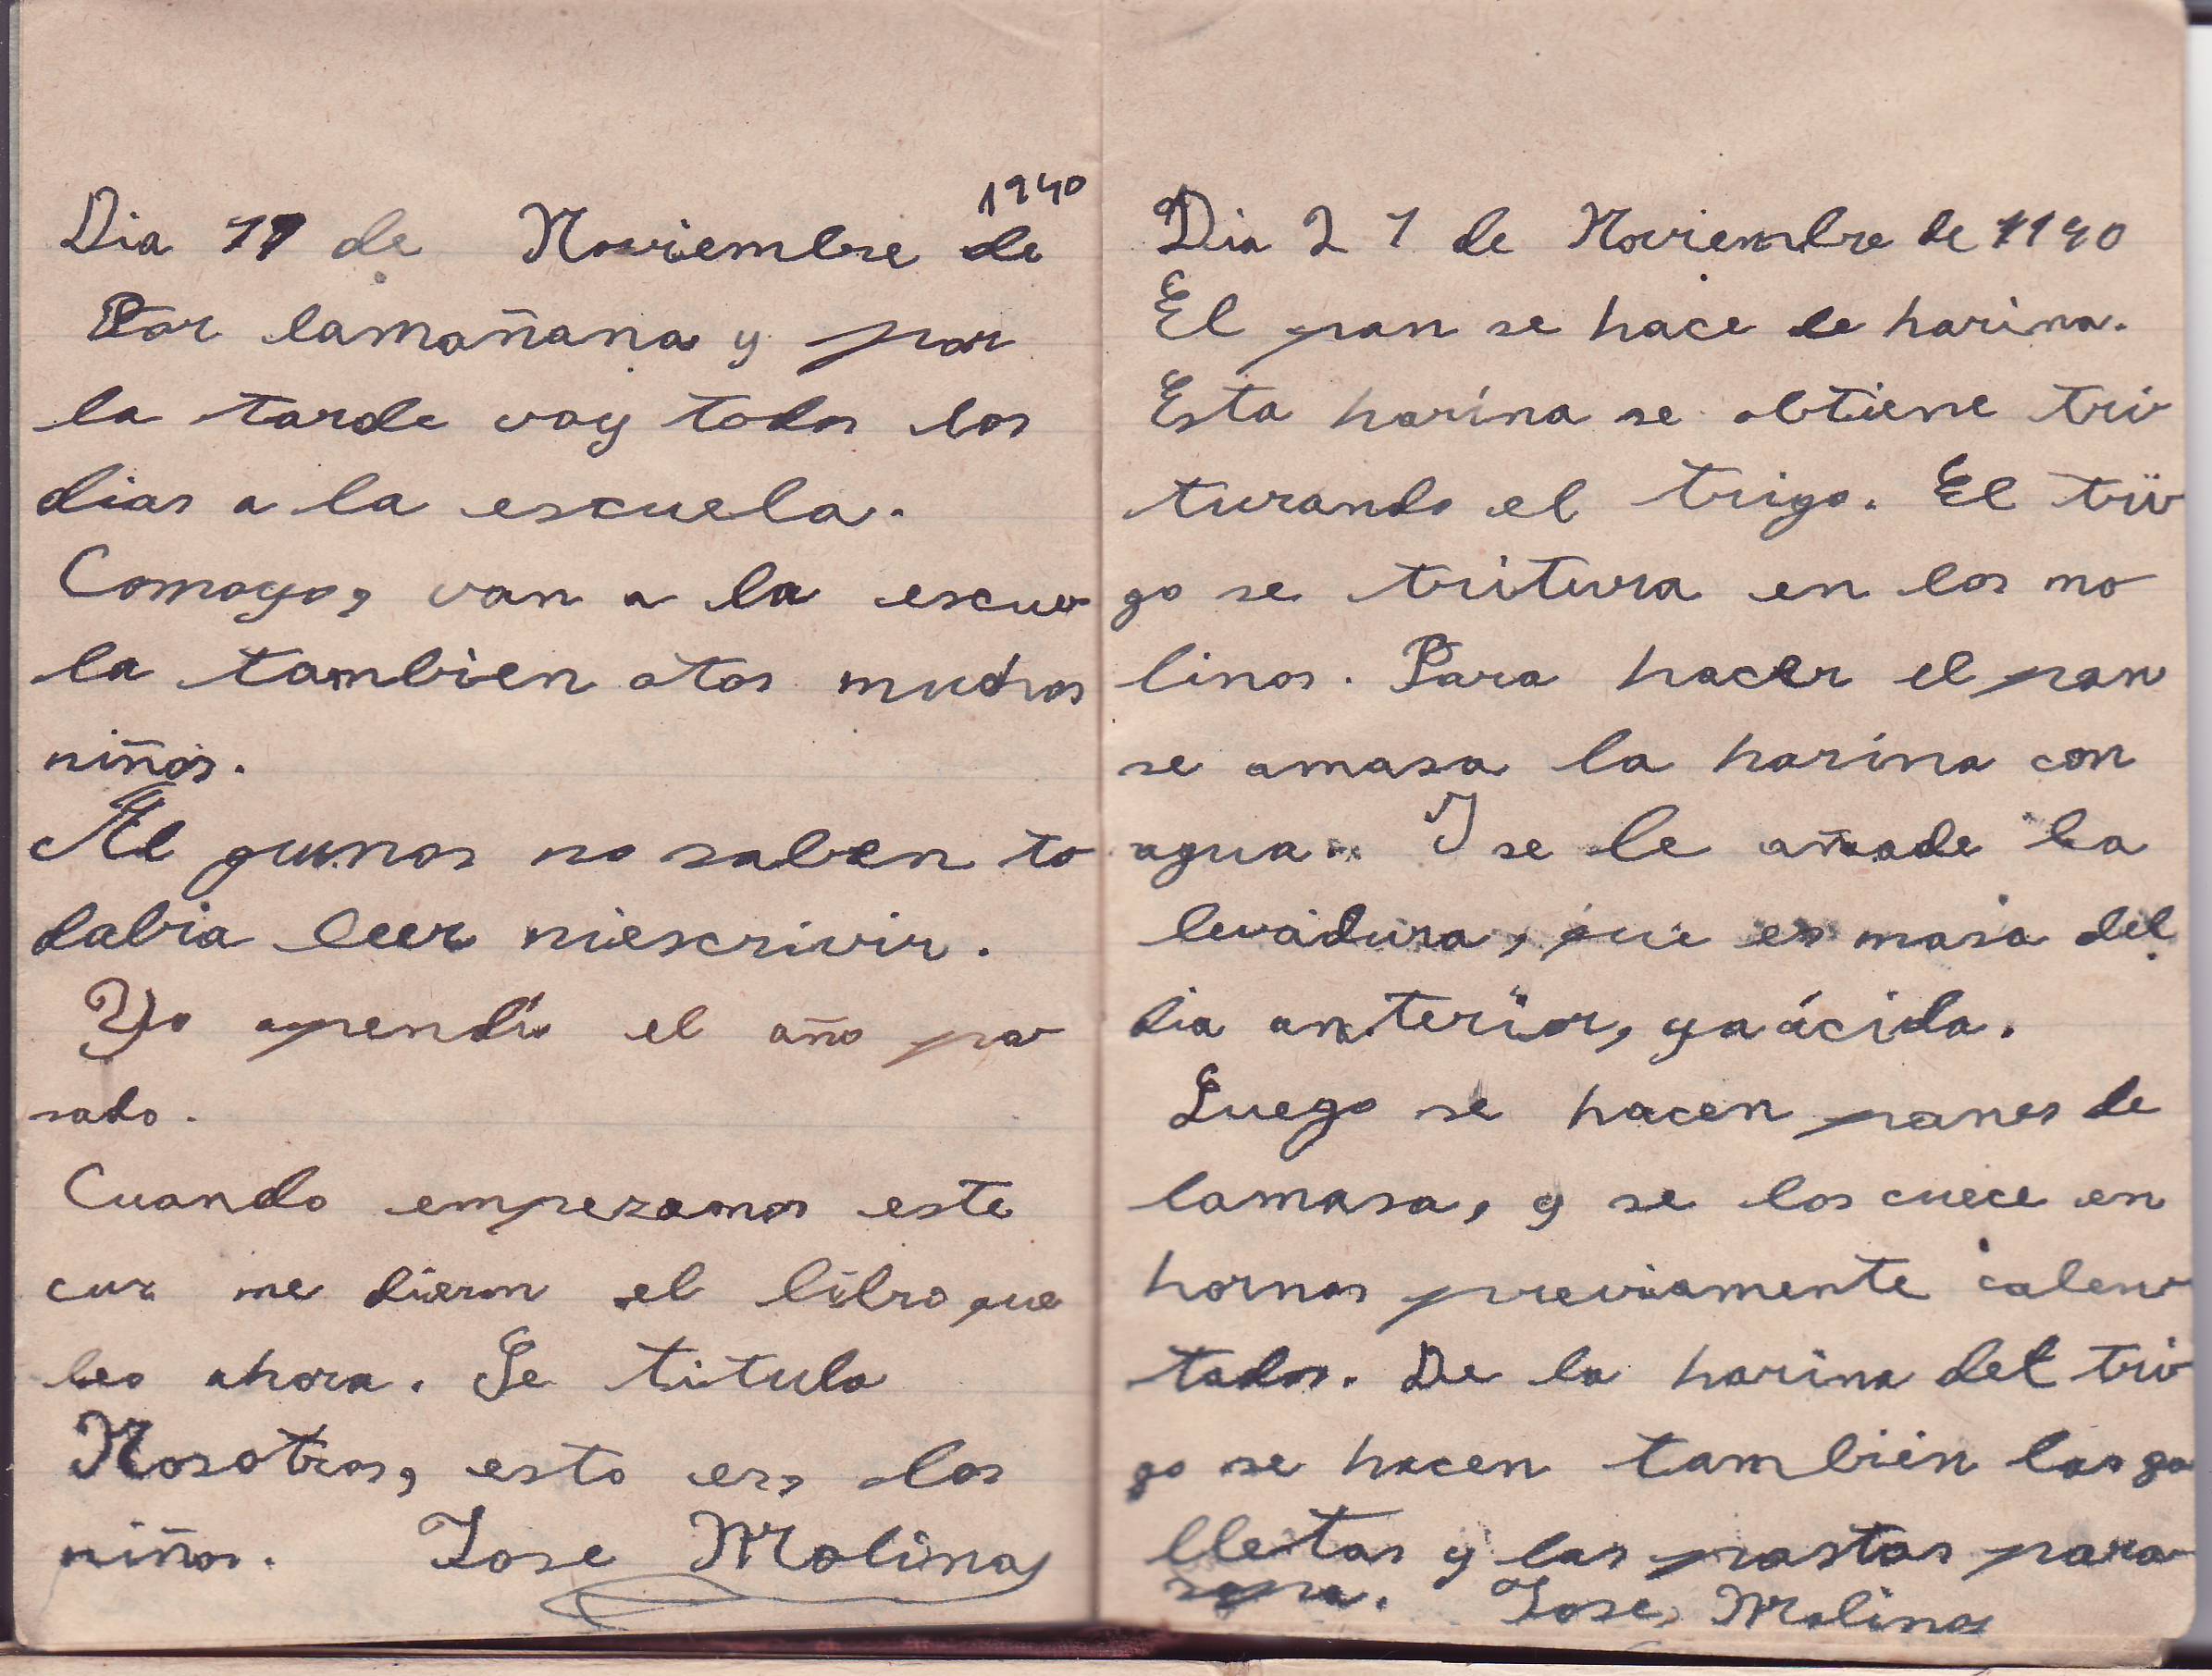 1940
Dia 19 de Noviembre de
Por lamañana y por
la tarde voy todos los
dias a la escuela.
Comoyo, van a la escue
la tambien otos muchos
niños.
Al gunos no saben to
dabia leer niescrivir.
Yo apendi el año pa
sado.
Cuando empezamos este
cur me dieron el libro que
leo ahora. Se titula
Nosotros, esto es, los
niños. Jose Molina
Dia 21 de Noviembre de 1940
El pan se hace de harina.
Esta harina se obtiene tri
turando el trigo. El tri
go se tritura en los mo
linos. Para hacer el pan
se amasa la harina con
agua. I se le añade la
levadura, que es masa del
dia anterior, ya ácida.
Luego se hacen panes de
lamasa, y se los cuece en
hornos previamente calen
tados. De la harina del tri
go se hacen también las ga
lletas y las pastas para
sopa. Jose Molina